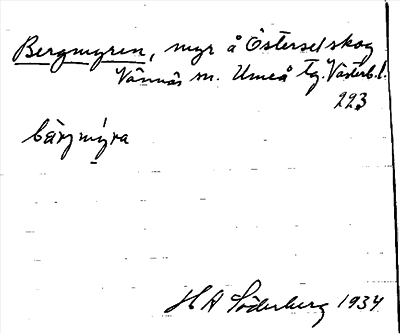 Bergmyren, myr å Österselskog
Vännäs sn. Umeå tg. Västerb. l.
223
bärjmýra
H A Söderberg 1934